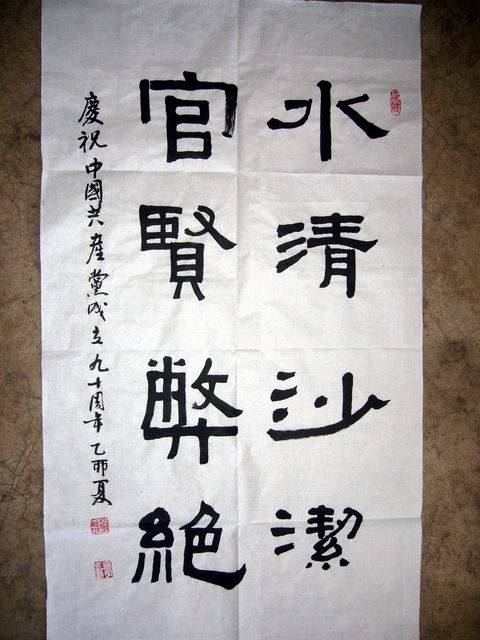 水清沙潔
官賢弊絕
慶祝中國共產黨成立九十周年乙卯夏